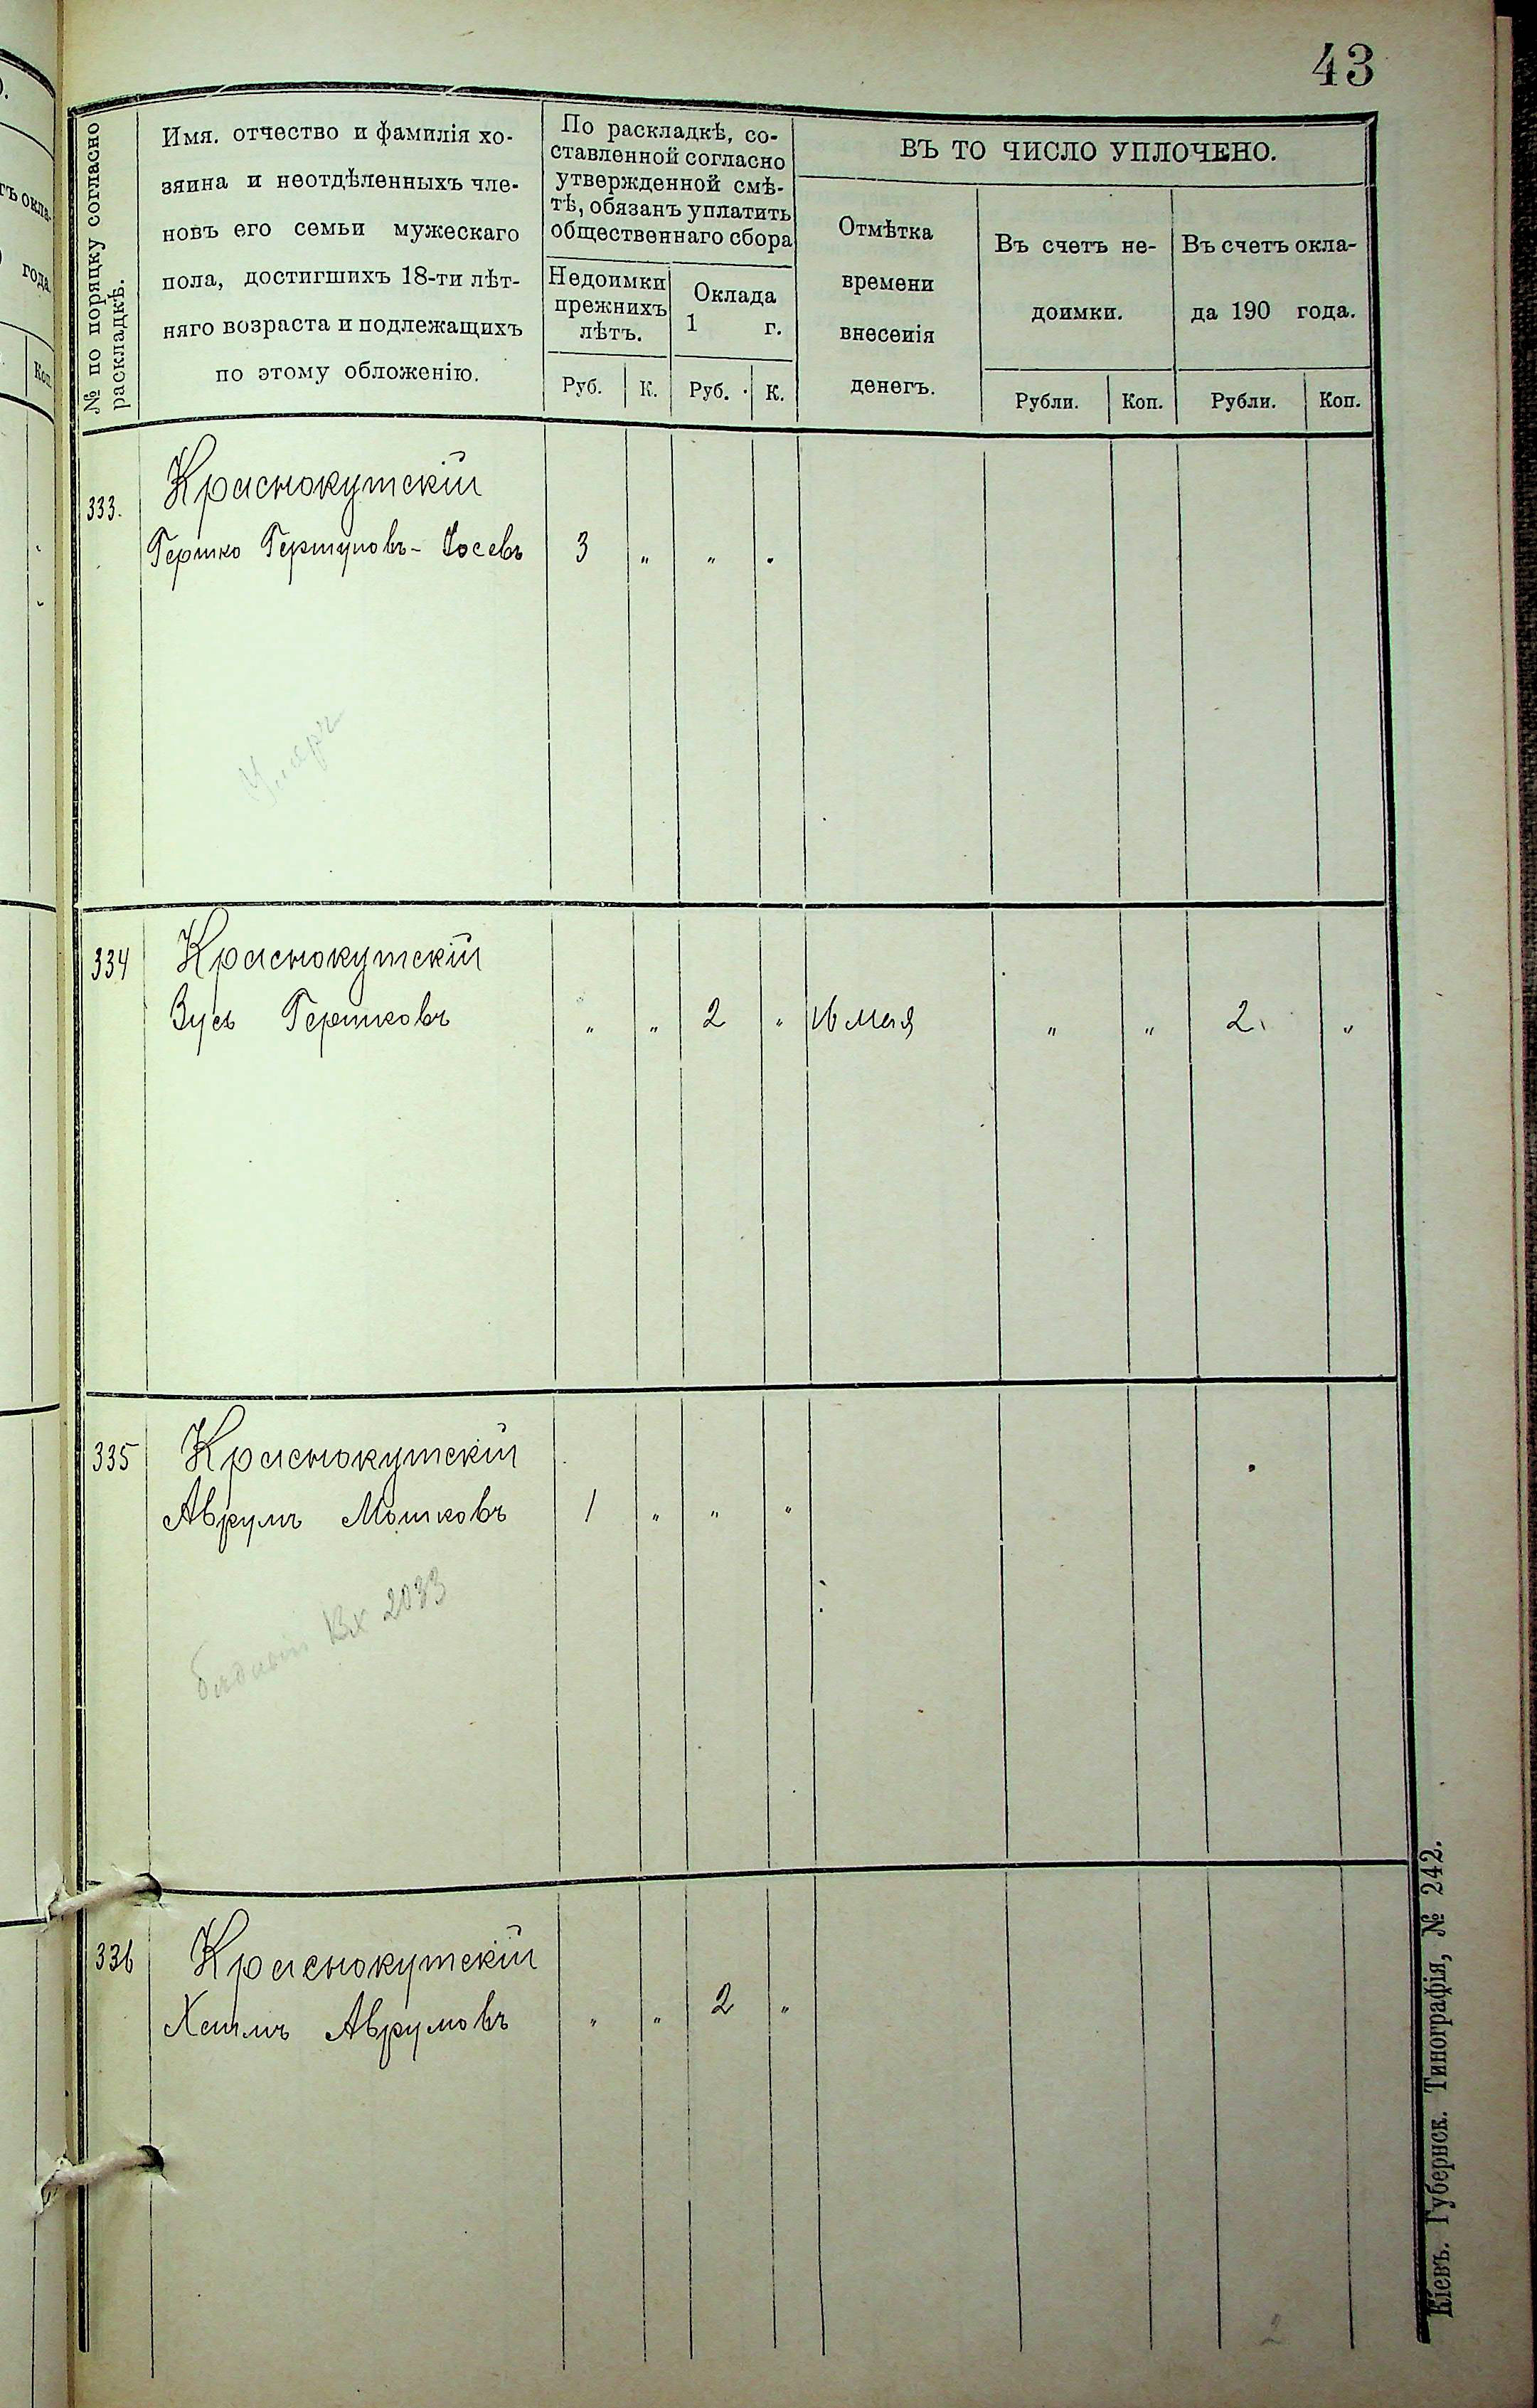 43
№ по порядку согласно
раскладкѣ.
Имя. отчество и фамилія хо-
зяина и неотдѣленныхъ чле-
новъ его семьи мужескаго
пола, достигшихъ 18-ти лѣт-
няго возраста и подлежащихъ
по этому обложенію.
По раскладкѣ, со-
ставленной согласно
утвержденной смѣ-
тѣ, обязанъ уплатить
общественнаго сбора
Недоимки
прежнихъ
лѣтъ.
Оклада
1 г.
Руб. К. Руб. К.
ВЪ ТО ЧИСЛО УПЛОЧЕНО.
Отмѣтка
времени
внесенія
денегъ.
Въ счетъ не-
доимки.
Въ счетъ окла-
да 190 года.
Рубли. Коп. Рубли. Коп.
333. Краснокутскій
Гершко Гершуновъ-Іосевъ 3 „ „ „
Умеръ
334 Краснокутскій
Зусь Гершковъ „ „ 2 „ 16 мая „ „ 2 „
335 Краснокутскій
Аврумъ Мошковъ 1 „ „ „
бѣдный Вх 2033
336 Краснокутскій
Хаимъ Аврумовъ „ „ 2 „
2
Кіевъ. Губернск. Типографія, № 242.